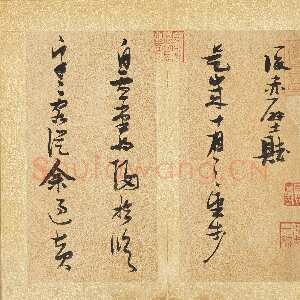 後赤壁賦
是歲十月之望步
自雪堂將歸於臨
皋二客從余過黃
Shufawang.CN